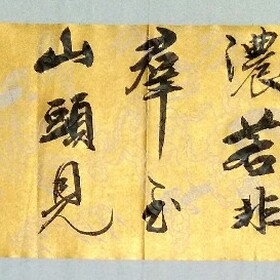 濃若非
群玉
山頭見